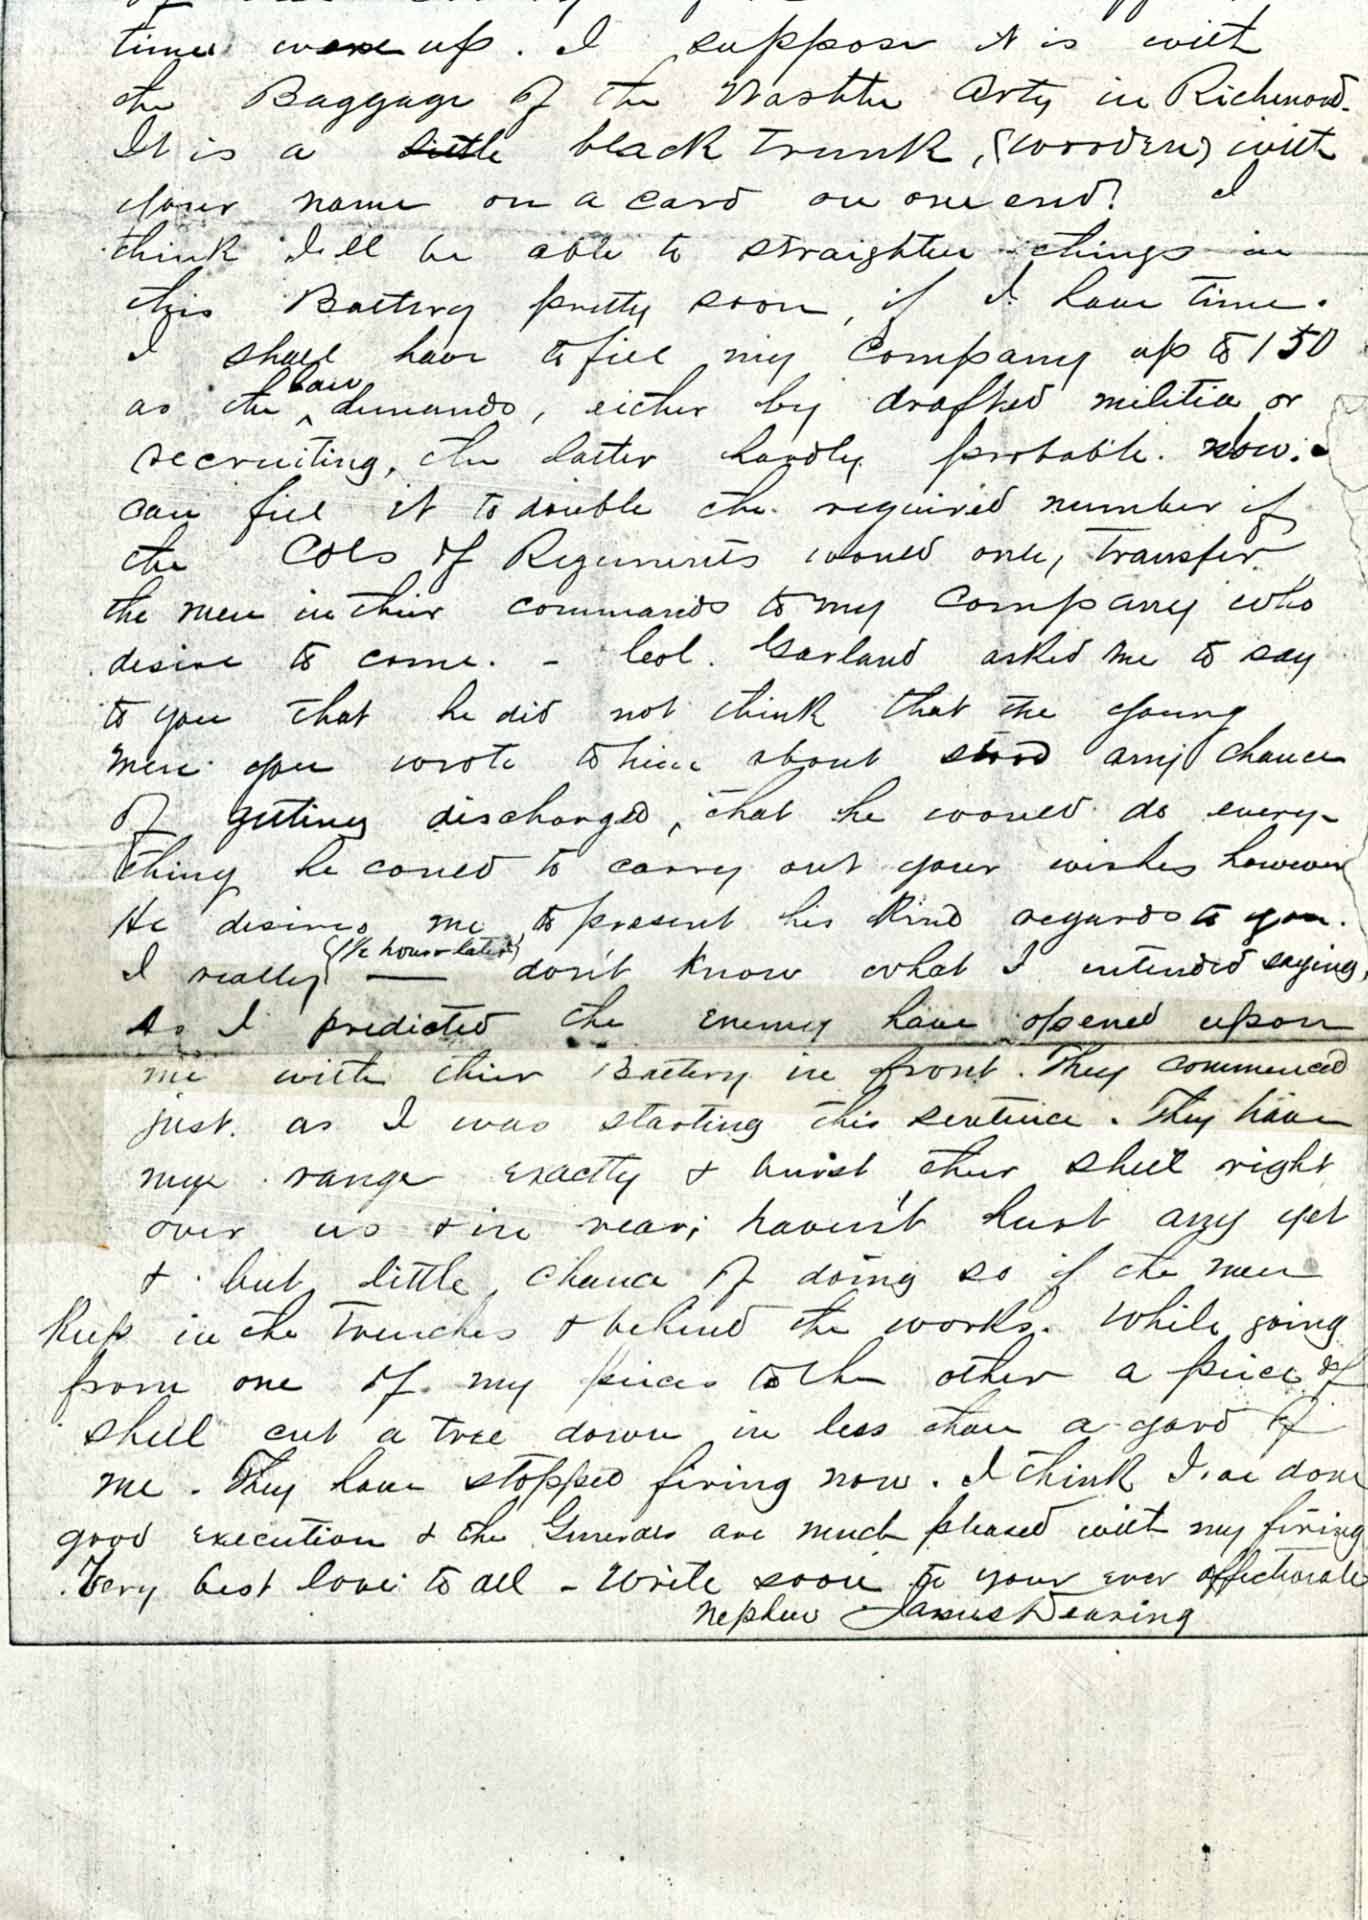 times were up. I suppose it is with
the Baggage of the Washtn Arty in Richmond.
It is a little black trunk, (wooden) with
your name on a card on one end. I
think I'll be able to straighten things in
this Battery pretty soon, if I have time.
I shall have to fill my Company up to 150
as the law demands, either by drafted militia or
recruiting, the latter hardly probable now.
can fill it to double the required number if
the Cols of Regiments would only transfer
the men in thier commands to my Company who
desire to come. - Col. Garland asked me to say
to you that he did not think that the young
men you wrote to him about stood any chance
of getting discharged, that he would do every-
thing he could to carry out your wishes however
He desires me to present his kind regards to you.
I really (1/2 hour later) — don't know what I intended saying,
As I predicted the enemy have opened upon
me with thier Battery in front. They commenced
just as I was starting this sentence. They have
my range exactly & burst their shell right
over us & in rear; haven't hurt any yet
& but little chance of doing so if the men
keep in the trenches & behind the works. While going
from one of my pieces to the other a piece of
shell cut a tree down in less than a yard of
me. They have stopped firing now. I think I've done
good execution & the Generals are much pleased with my firing
Very best love to all - Write soon to your ever affectionate
nephew James Dearing